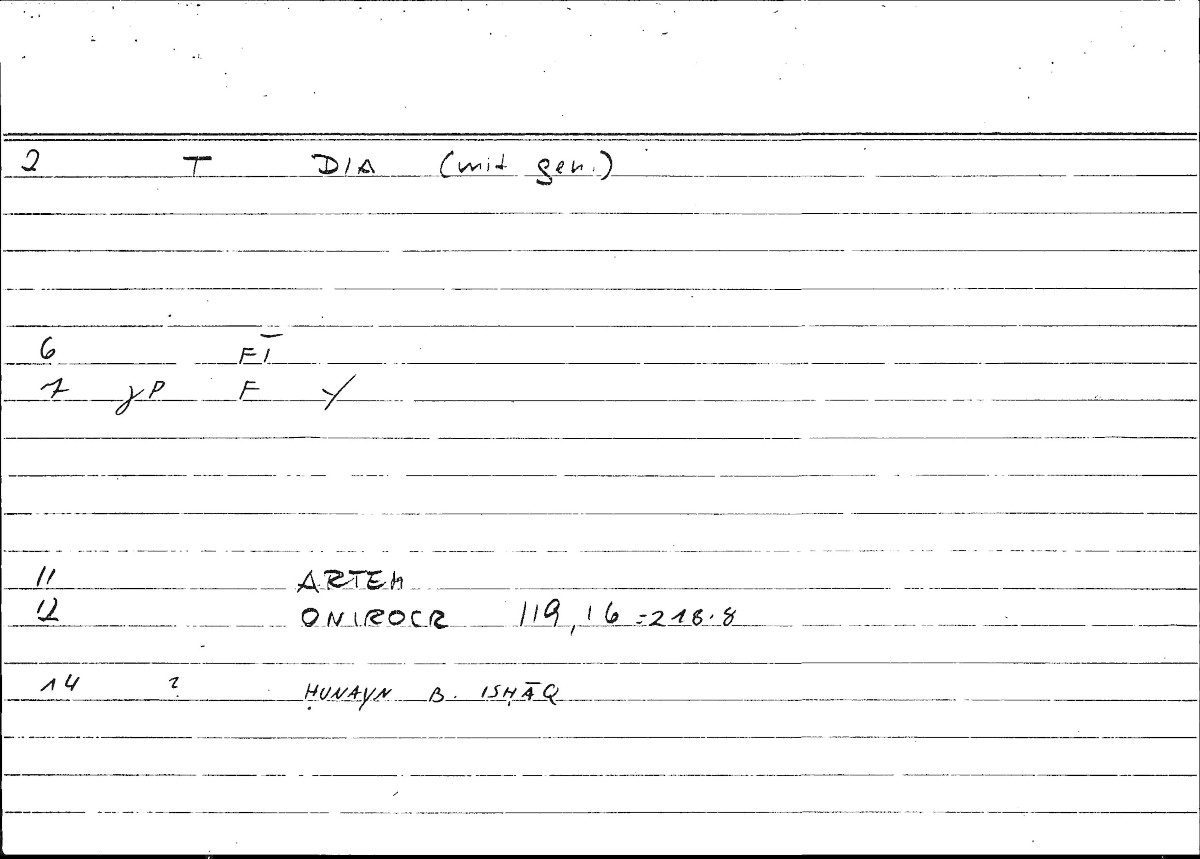 2 T DIA (mit gen.)
6 FĪ
7 γP F Y
11 ARTEM
12 ONIROCR 119,16 = 218.8
14 ? ḤUNAYN B. ISḤĀQ